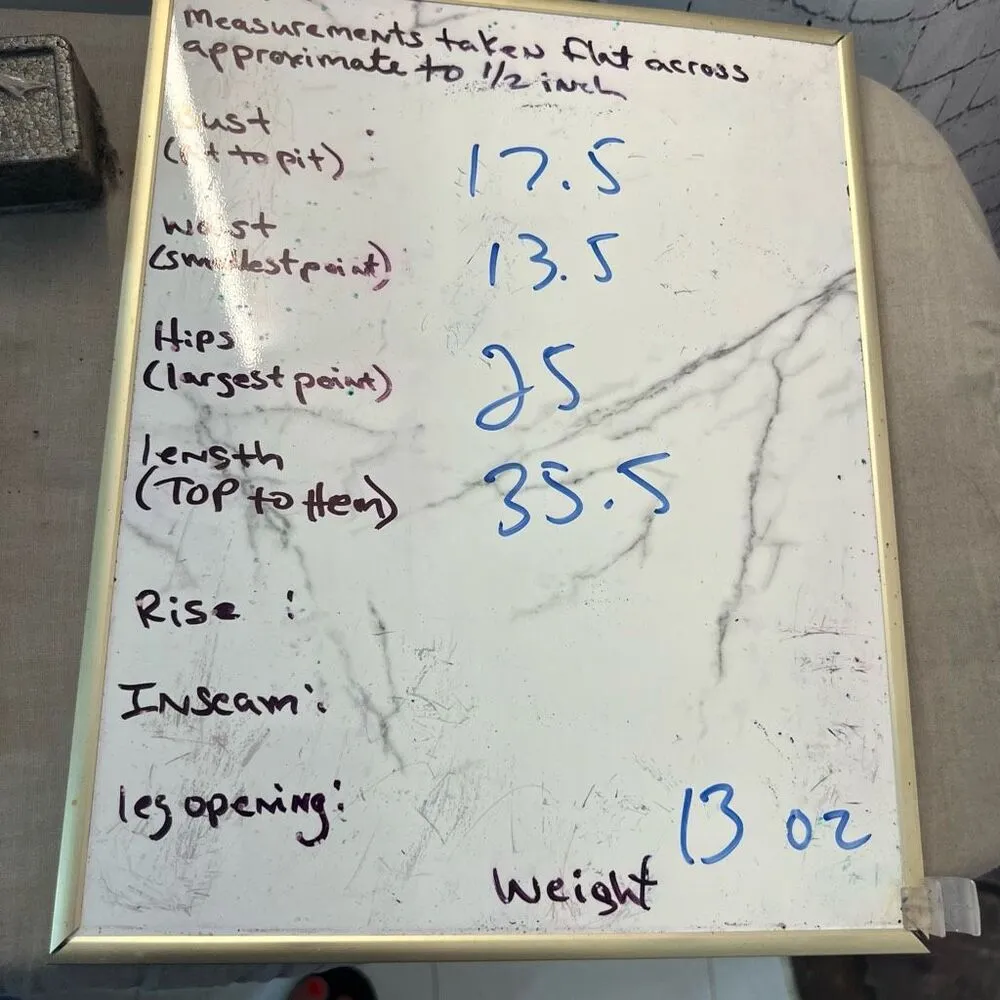 Measurements taken flat across
approximate to 1/2 inch
Bust :
(pit to pit) 17.5
Waist
(smallest point) 13.5
Hips
(largest point) 25
length
(TOP to Hem) 35.5
Rise :
Inseam :
leg opening :
13 oz
Weight